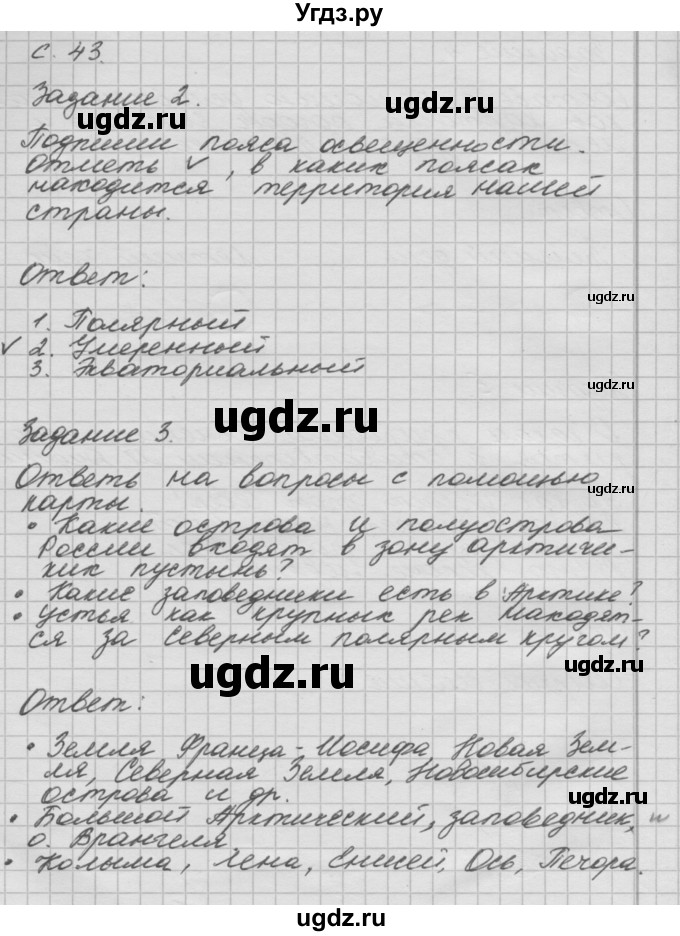 Угдз.ру
с. 43.
Задание 2.
ugdz.ru
ugdz.ru
Подпиши пояса освещенности.
Отметь ✓, в каких поясах
находится территория нашей
страны.
Ответ:
ugdz.ru
1. Полярный
✓ 2. Умеренный
3. Экваториальный
ugdz.ru
ugdz.ru
Задание 3.
Ответь на вопросы с помощью
ugdz.ru
карты.
• Какие острова и полуострова
России входят в зону арктичес-
ких пустынь?
• Какие заповедники есть в Арктике?
• Устья как крупных рек находят-
ся за Северным полярным кругом?
ugdz.ru
ugdz.ru
Ответ:
• Земля Франца-Иосифа Новая Зем-
ля, Северная Земля, Новосибирские
острова и др.
• Большой Арктический, заповедник, и
о. Врангеля
• Колыма, Лена, Енисей, Обь, Печора.
ugdz.ru
ugdz.ru